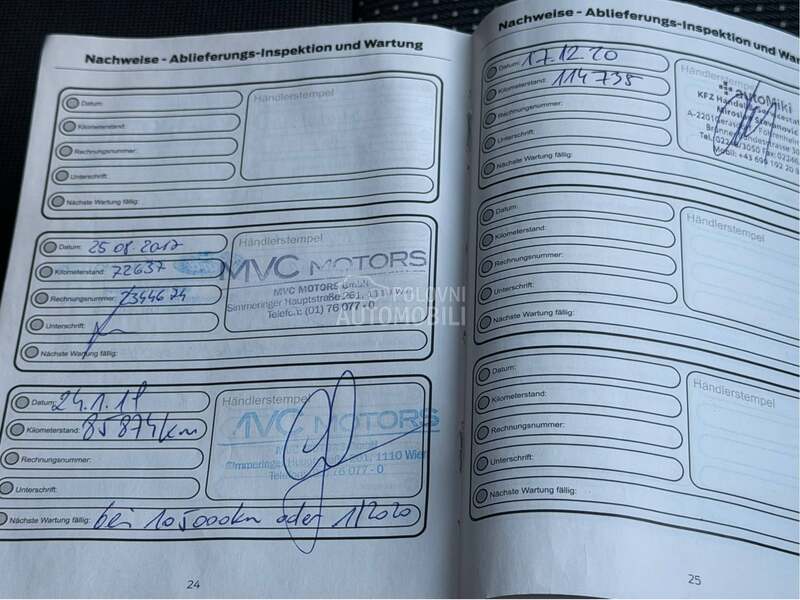 Nachweise - Ablieferungs-Inspektion und Wartung
Datum:
Kilometerstand:
Rechnungsnummer:
Unterschrift:
Nächste Wartung fällig:
Händlerstempel
Datum: 25 08 2017
Kilometerstand: 72637
Rechnungsnummer:
Unterschrift:
Nächste Wartung fällig:
Händlerstempel
MVC MOTORS
MVC MOTORS GmbH
Simmeringer Hauptstraße 261, 1110
Telefon: (01) 76 077 - 0
POLOVNI
AUTOMOBILI
Datum: 24.1.18
Kilometerstand: 85874km
Rechnungsnummer:
Unterschrift:
Nächste Wartung fällig: bei 105000km oder 1/2020
Händlerstempel
MVC MOTORS
1110 Wien
76 077 - 0
24
Nachweise - Ablieferungs-Inspektion und Wa
Datum: 17.12.20
Kilometerstand: 114735
Rechnungsnummer:
Unterschrift:
Nächste Wartung fällig:
Händlerstempel
KFZ Handel
Datum:
Kilometerstand:
Rechnungsnummer:
Unterschrift:
Nächste Wartung fällig:
Händlerstempel
Datum:
Kilometerstand:
Rechnungsnummer:
Unterschrift:
Nächste Wartung fällig:
Händlerstempel
25